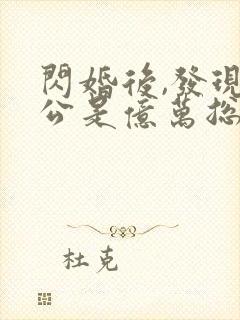 閃婚後,發現
公是億萬總
杜克